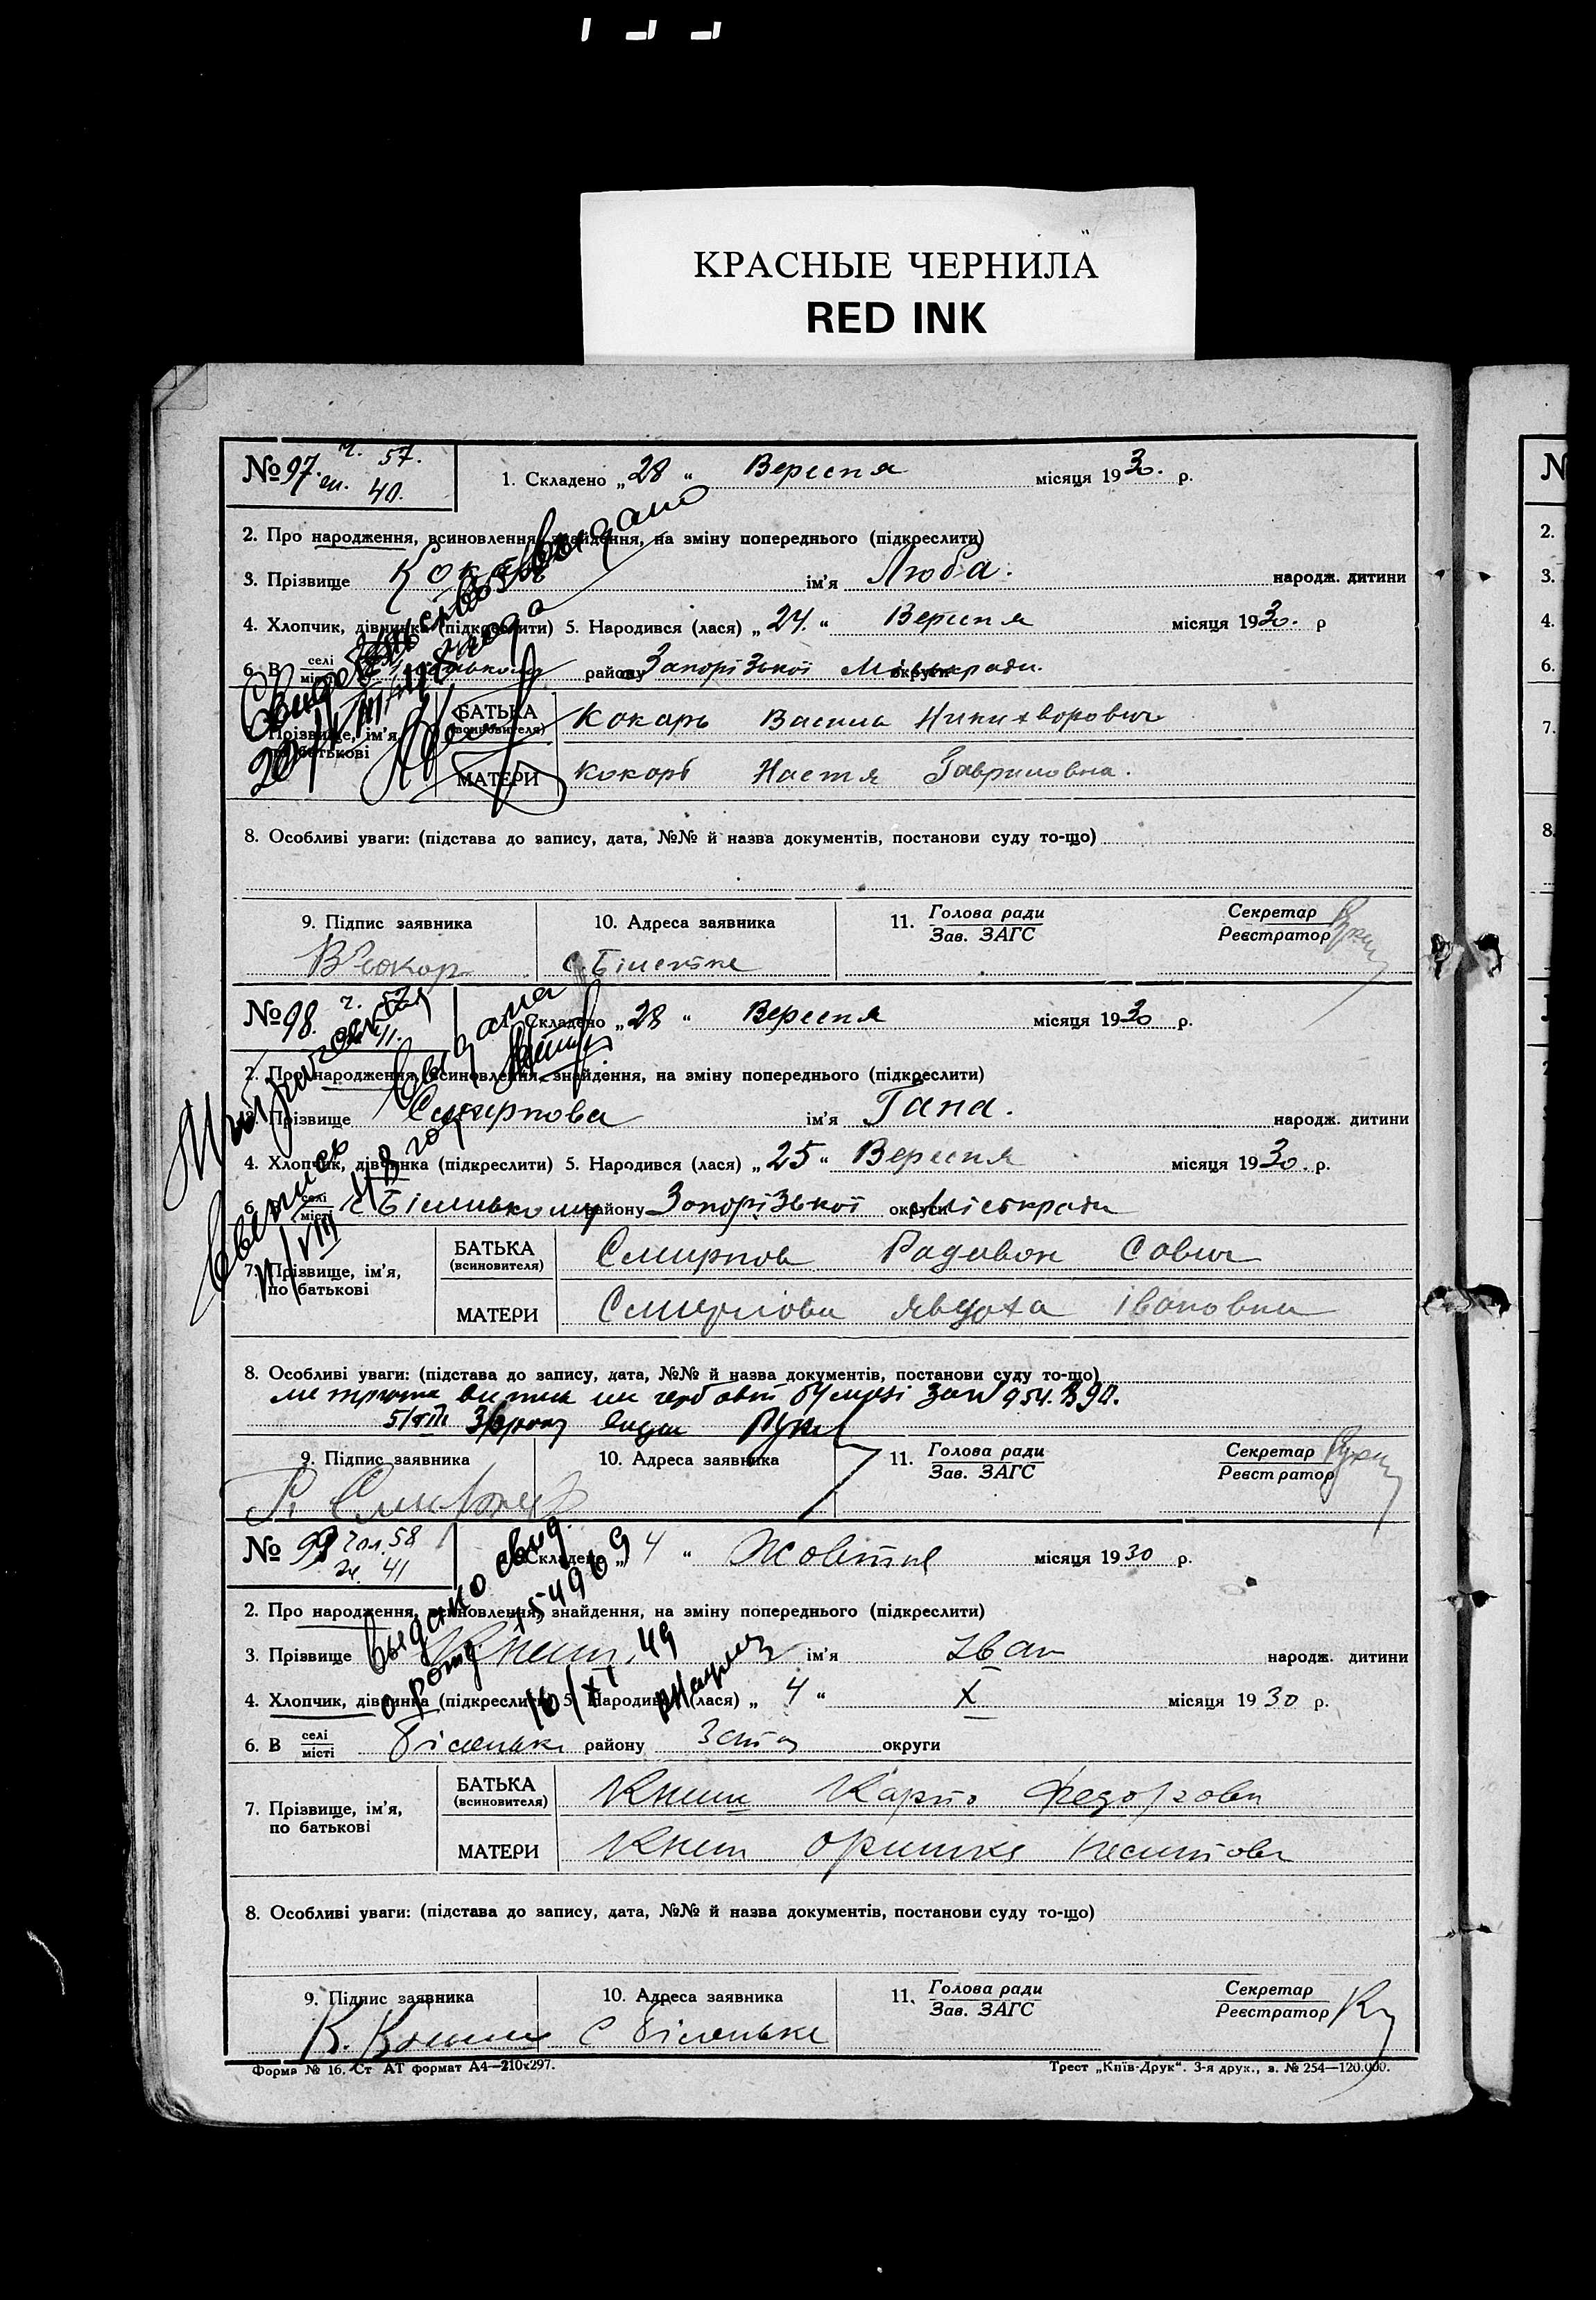 КРАСНЫЕ ЧЕРНИЛА
RED INK
№ 97. ч. 57.
40.
1. Складено „28“ Вересня місяця 1930. р.
2. Про народження, всиновлення, знайдення, на зміну попереднього (підкреслити)
3. Прізвище Кокарь ім'я Люба. народж. дитини
4. Хлопчик, дівчинка (підкреслити) 5. Народився (лася) „24.“ Вересня місяця 1930. р
6. В селі місті району Запорізької округи Міськради.
Свидетельство выдано
20/VIII 48 года
Прізвище, ім'я, по батькові
БАТЬКА (всиновителя) Кокарь Василь Никихворович
МАТЕРИ Кокарь Настя Гавриловна.
8. Особливі уваги: (підстава до запису, дата, №№ й назва документів, постанови суду то-що)
9. Підпис заявника
10. Адреса заявника
11. Голова ради Зав. ЗАГС
Секретар Реєстратор
В Кокар с Біленьке
№ 98. ч. 57
41.
Складено „28“ Вересня місяця 1930 р.
2. Про народження, всиновлення, знайдення, на зміну попереднього (підкреслити)
3. Прізвище Смирнова ім'я Гана. народж. дитини
4. Хлопчик, дівчинка (підкреслити) 5. Народився (лася) „25“ Вересня місяця 1930. р.
6. селі місті с Біленькому району Запорізької округи Міськради
Метрическая выпись выдана
11/VIII 48 год
7. Прізвище, ім'я, по батькові
БАТЬКА (всиновителя) Смирнов Радивон Савич
МАТЕРИ Смирнова Явдоха Івановна
8. Особливі уваги: (підстава до запису, дата, №№ й назва документів, постанови суду то-що)
5/VIII 36 року
9. Підпис заявника
10. Адреса заявника
11. Голова ради Зав. ЗАГС
Секретар Реєстратор
№ 99 чол. 58
41
Складено „4“ Жовтня місяця 1930 р.
2. Про народження, всиновлення, знайдення, на зміну попереднього (підкреслити)
3. Прізвище Книш ім'я Іван народж. дитини
4. Хлопчик, дівчинка (підкреслити) 5. Народився (лася) „4“ X місяця 1930 р.
6. В селі місті Біленьке району округи
Выдано свид.
о рожд.
16/XI 49
7. Прізвище, ім'я, по батькові
БАТЬКА (всиновителя) Книш Карпо Федорович
МАТЕРИ Книш Оришка
8. Особливі уваги: (підстава до запису, дата, №№ й назва документів, постанови суду то-що)
9. Підпис заявника
10. Адреса заявника
11. Голова ради Зав. ЗАГС
Секретар Реєстратор
К. Книш с Біленьке
Форма № 16. Ст АТ формат А4—210х297.
Трест „Київ-Друк“. 3-я друк., з. № 254—120.000.
N
2.
3.
4.
6.
7.
8.